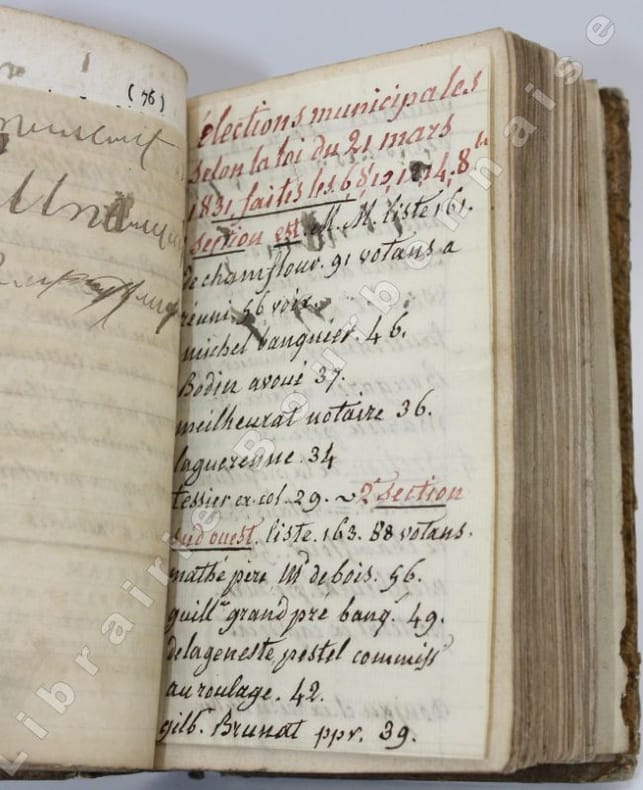 (76)
manuscrit
élections municipales
selon la loi du 21 mars
1831 faites les. 6 8, 12, 14, 8bre
section est. M. M. liste 161.
de chamflour. 91 votans a
réuni. 56 voix.
michel banquier. 46.
Bodin avoué 37.
meilheurat notaire 36.
laguerenne. 34
tessier ex col. 29. ~ 2e section
sud ouest. liste. 163. 88 votans.
mathé père Md de bois. 56.
guillme grand pré banqr. 49.
delageneste, postel commiss
au roulage. 42.
gilb. Brunat ppre. 39.
Librairie Bourbonnaise